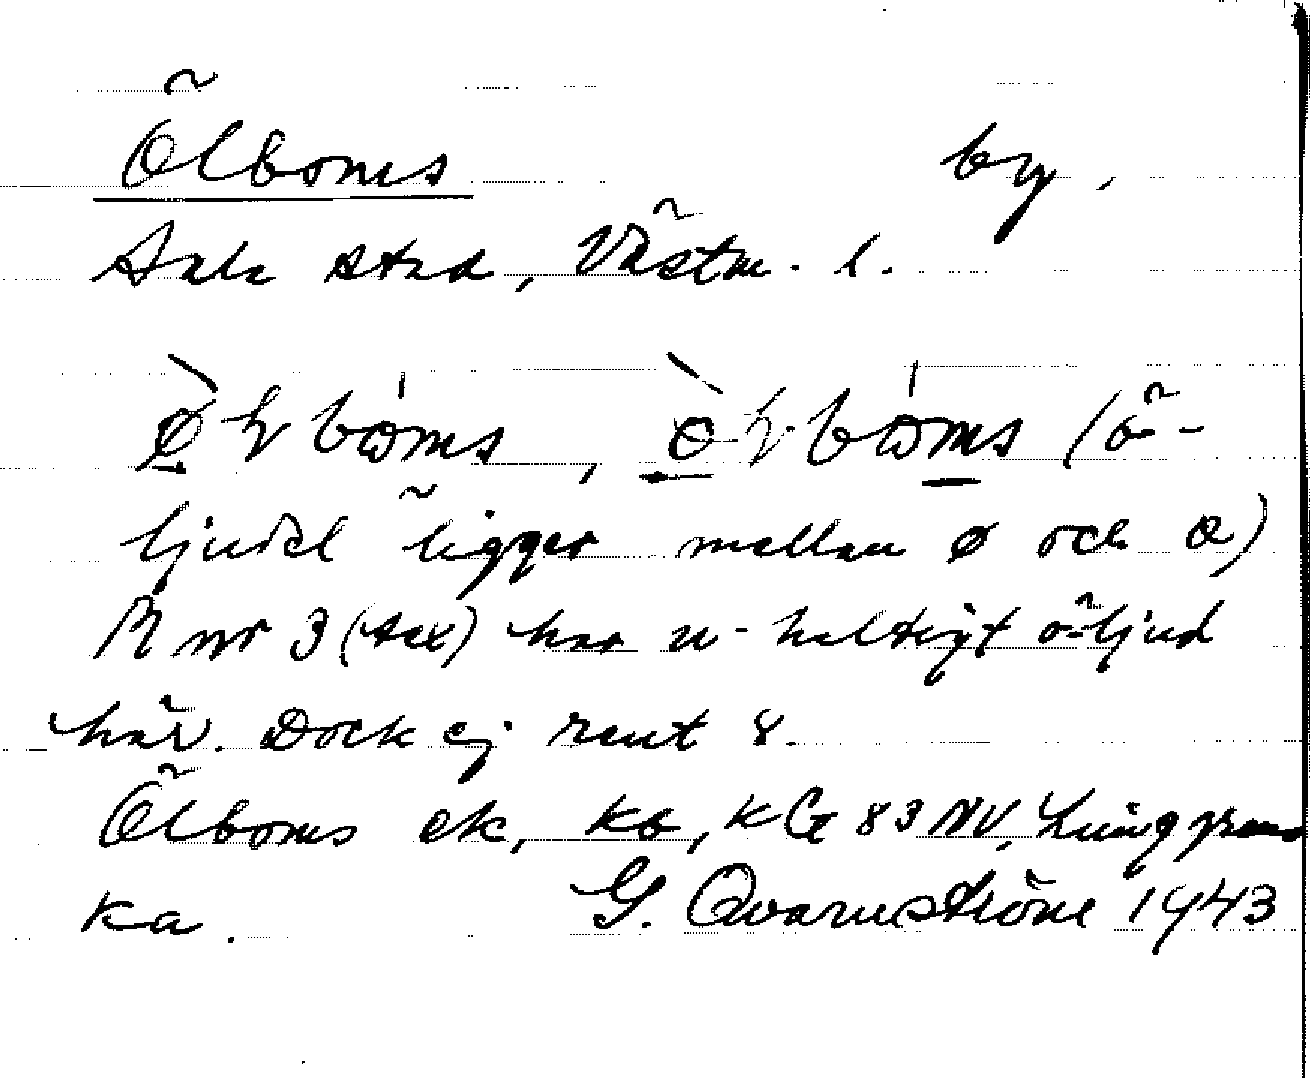 Ölboms by.
Sala stad, Västm. l.
(ö-
ljudet ligger mellan ø och
R nr 3 (sex) har u-haltigt ö-ljud
här. Dock ej rent 8.
Ölboms ek, ka, KG 83 NV, Ljunggren
ka. G. Qvarnström 1943